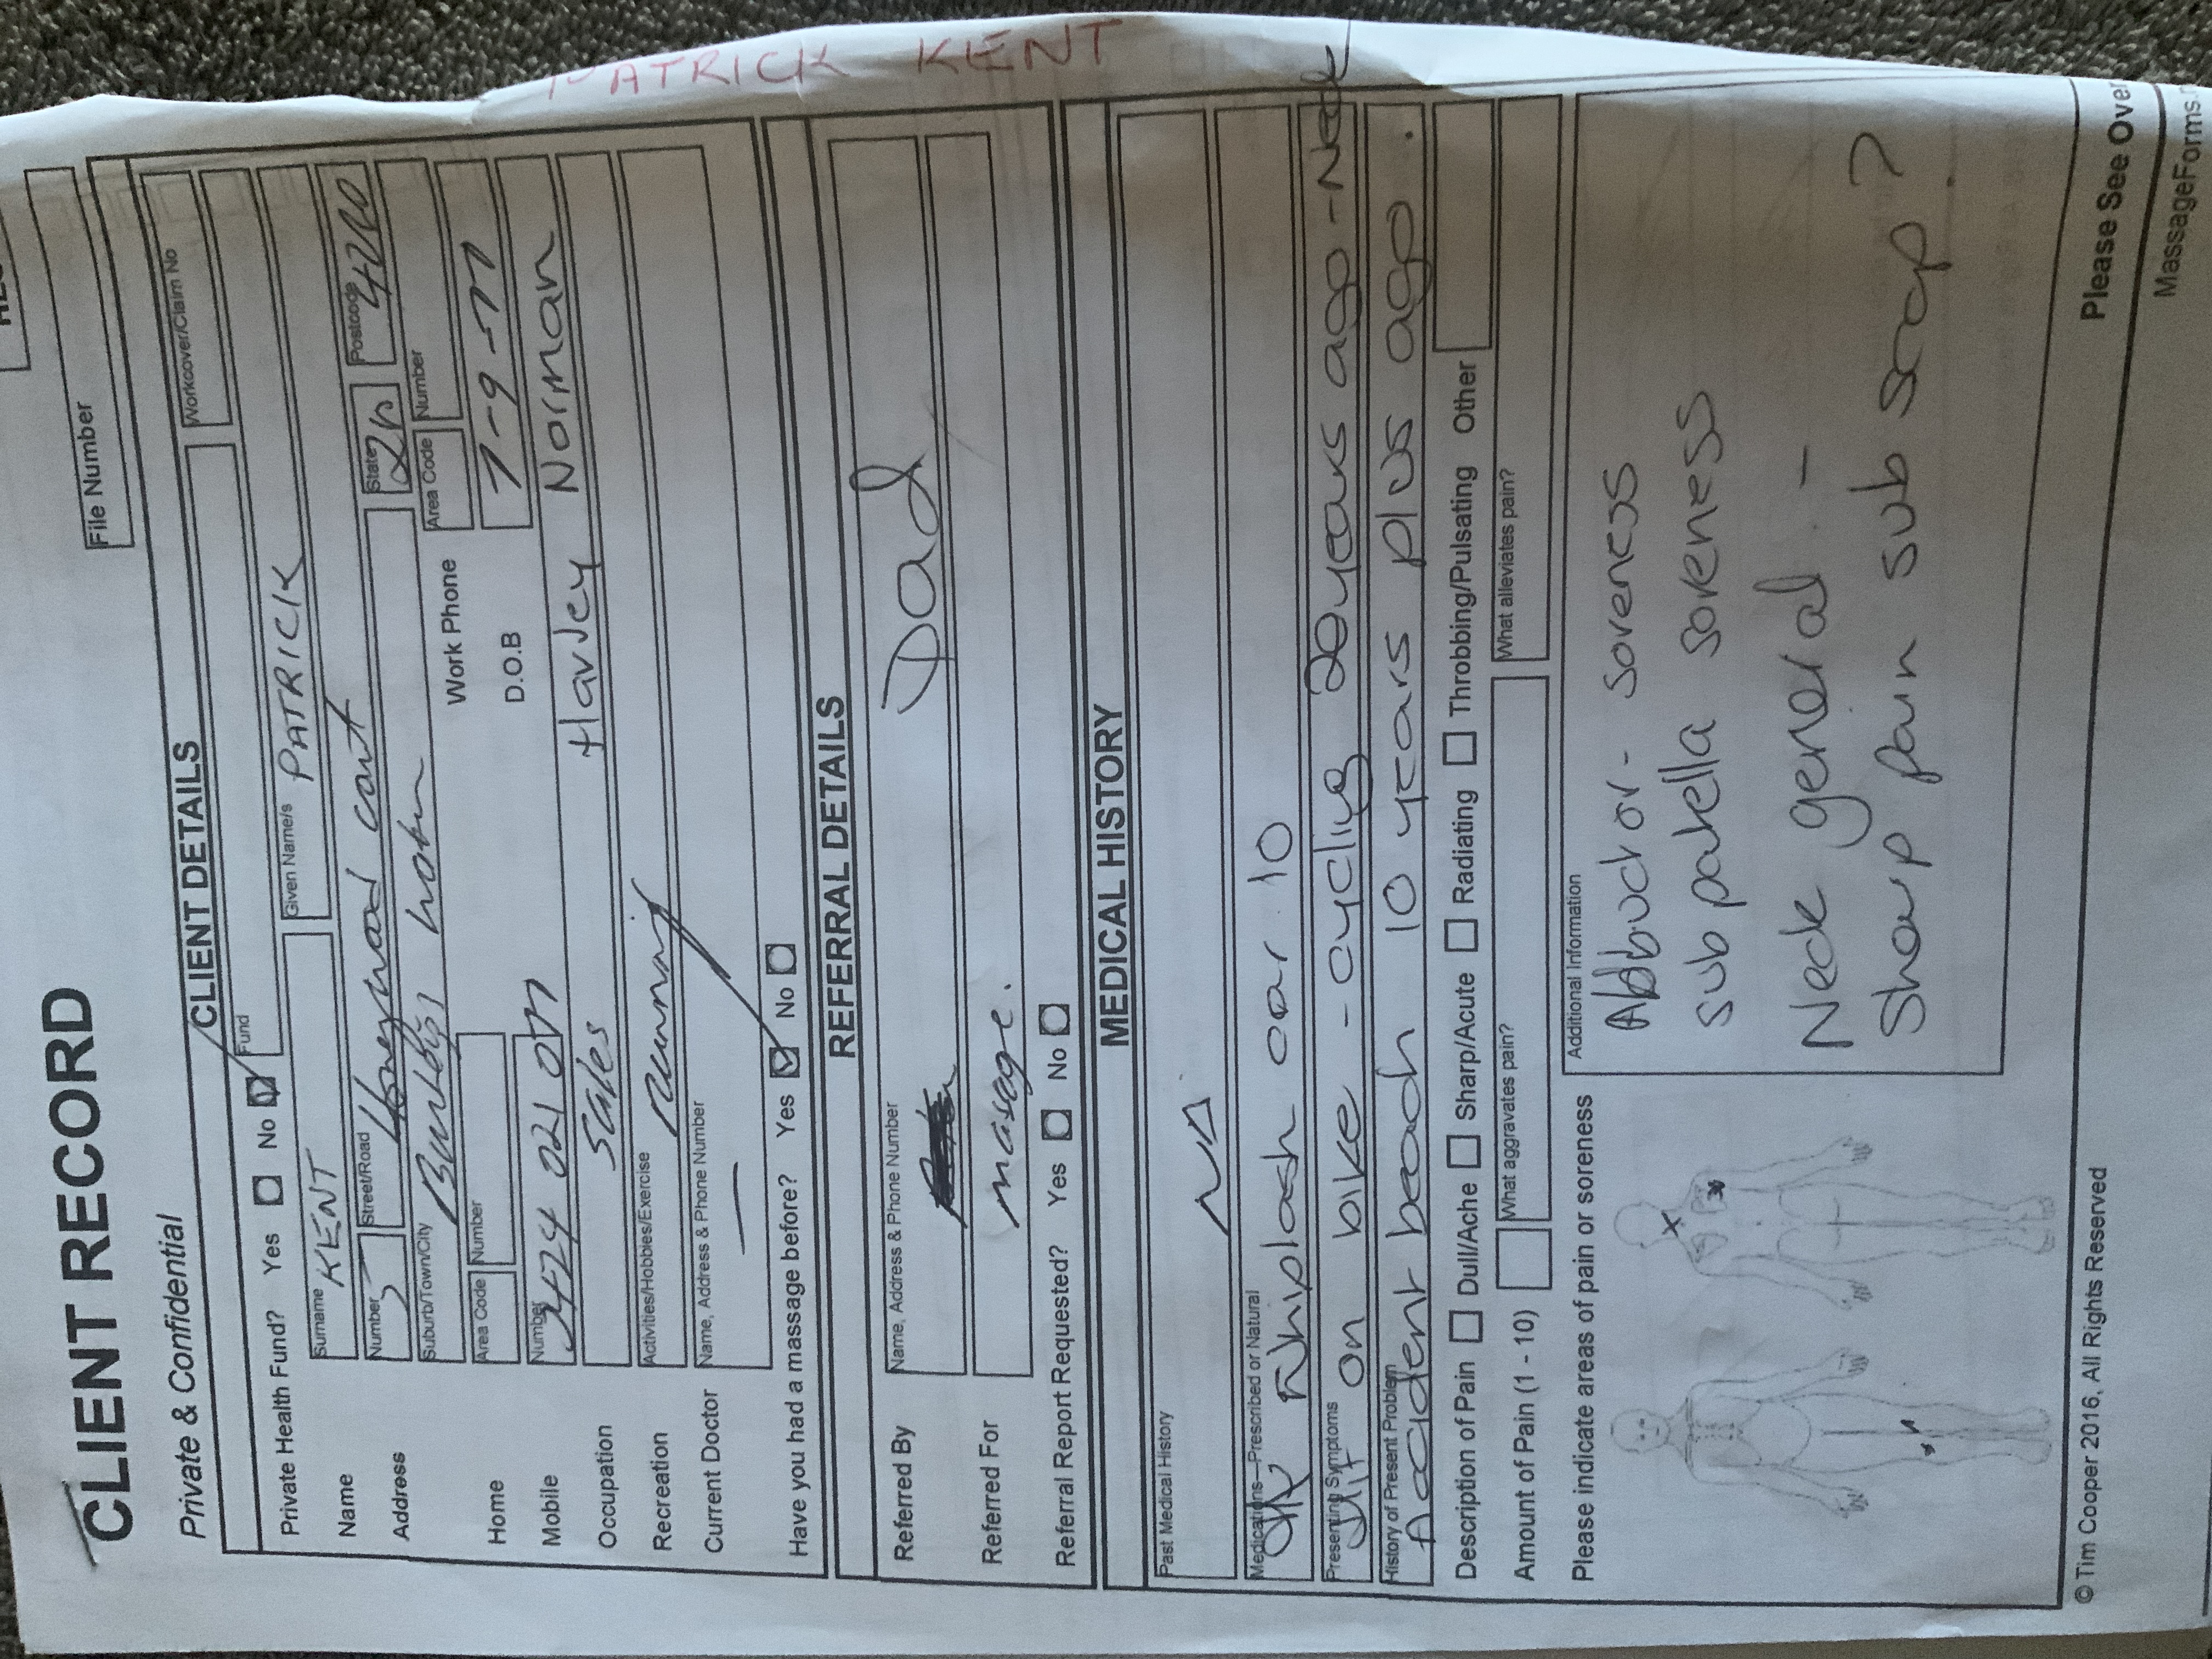 PATRICK KENT
CLIENT RECORD
Private & Confidential
File Number
CLIENT DETAILS
Private Health Fund? Yes No Fund
Workcover/Claim No
Name Surname KENT Given Name/s PATRICK
Address Number 5 Street/Road court State Postcode
Suburb/Town/City
Home Area Code Number Work Phone Area Code Number
Mobile Number D.O.B 7-9-77
Occupation Sales Harvey Norman
Recreation Activities/Hobbies/Exercise running
Current Doctor Name, Address & Phone Number —
Have you had a massage before? Yes No
REFERRAL DETAILS
Referred By Name, Address & Phone Number Dad
Referred For massage.
Referral Report Requested? Yes No
MEDICAL HISTORY
Past Medical History
Medications—Prescribed or Natural
Whiplash car 10
Presenting Symptoms
on bike - cycling 20 years ago - Neck
History of Present Problem
Accident beach 10 years plus ago.
Description of Pain Dull/Ache Sharp/Acute Radiating Throbbing/Pulsating Other
Amount of Pain (1 - 10) What aggravates pain? What alleviates pain?
Please indicate areas of pain or soreness
Additional Information
Abbuctor - soreness
sub patella soreness
Neck general -
Sharp pain sub scap?
© Tim Cooper 2016, All Rights Reserved
Please See Over
MassageForms.